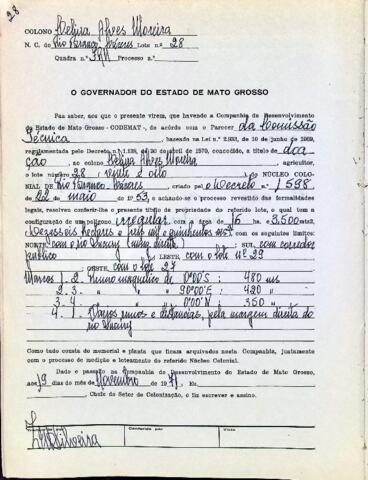 28
COLONO Delina Alves Moreira
N. C. do Rio Branco, Cáceres Lote n.º 28
Quadra n.º Processo n.º
O GOVERNADOR DO ESTADO DE MATO GROSSO
Faz saber, aos que o presente virem, que havendo a Companhia de Desenvolvimento
do Estado de Mato Grosso - CODEMAT -, de acôrdo com o Parecer da Comissão
Técnica, baseado na Lei n.º 2.933, de 10 de junho de 1969,
regulamentada pelo Decreto n.º 1.138, de 20 de abril de 1970, concedido, a título de doa
ção, ao colono Delina Alves Moreira agricultor,
o lote número 28 vinte e oito do NÚCLEO COLO-
NIAL DE Rio Branco-Cáceres, criado pelo Decreto n.º 1.598,
de 22 de maio de 53, e achando-se o processo revestido das formalidades
legais, resolveu conferir-lhe o presente título de propriedade do referido lote, o qual tem a
configuração de um polígono irregular, com a área de 16 ha. e 3.500 mts2.
(Dezesseis hectares e três mil e quinhentos mts2 com os seguintes limites:
NORTE, com o rio (margem direita) ; SUL, com corredor
público ; LESTE, com o lote nº 29
; OESTE, com o lote 27
Marcos 1. 2. Rumo magnético de 0º00'S: 480 ms
2. 3. " " " 90º00'S: 420 "
3. 4. " " " 0º00'N 350 "
4. 1. Vários rumos e distâncias, pela margem direita do
rio
Como tudo consta do memorial e planta que ficam arquivados nesta Companhia, juntamente
com o processo de medição e loteamento do referido Núcleo Colonial.
Dado e passado na Companhia de Desenvolvimento do Estado de Mato Grosso,
aos 19 dias do mês de Novembro de 1971. Eu,
, Chefe do Setor de Colonização, o fiz escrever e assino.
Conferido por Visto